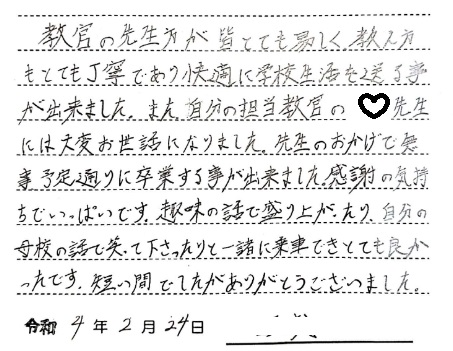 教官の先生方が皆とても易しく、教え方
もとても丁寧であり快適に学校生活を送る事
が出来ました。また、自分の担当教官の ♥ 先生
には大変お世話になりました。先生のおかげで無
事予定通りに卒業する事が出来ました。感謝の気持
ちでいっぱいです。趣味の話で盛り上がったり、自分の
母校の話で笑って下さったりと一緒に乗車できとても良か
ったです。短い間でしたがありがとうございました。
令和 4 年 2 月 24 日